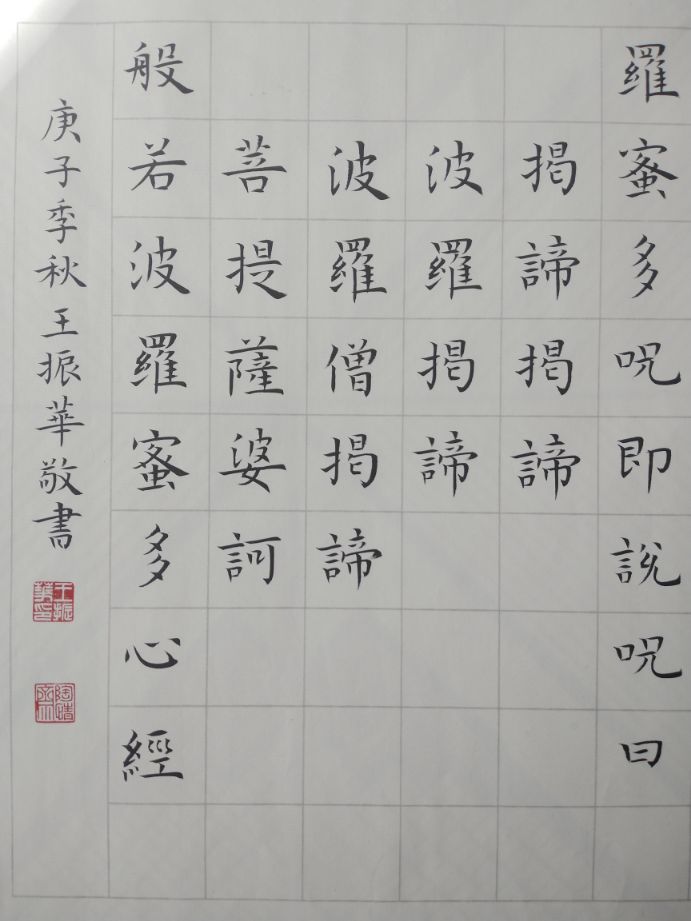 羅蜜多呪即說呪曰
揭諦揭諦
波羅揭諦
波羅僧揭諦
菩提薩婆訶
般若波羅蜜多心經
庚子季秋王振華敬書
王振華印